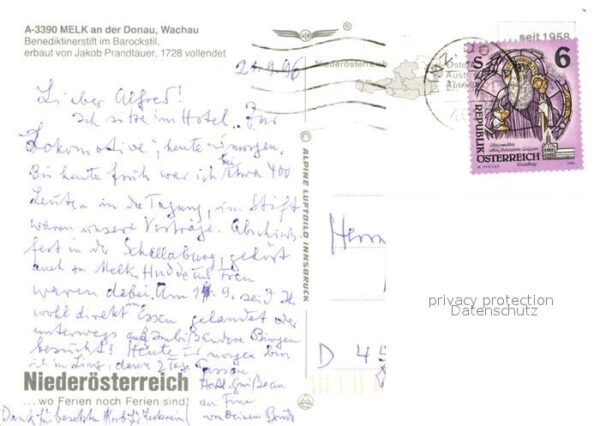 A-3390 MELK an der Donau, Wachau
Benediktinerstift im Barockstil,
erbaut von Jakob Prandtauer, 1728 vollendet
21.9.96
Lieber Alfred!
Ich sitze im Hotel "Zur
Lokomotive", heute + morgen.
Bis heute früh war ich bei etwa 400
Leuten in der Tagung, im Stift
waren unsere Vorträge. Abschieds-
fest in der Schallaburg, gehört
auch zu Melk. Hudde und Frau
waren dabei. Am 11.9. seid Ihr
wohl direkt Essen gelandet oder
unterwegs andere Burgen
besucht? Heute + morgen bin
ich in Linz, dann 2 Tage Passau
Herzl. Grüße an
von Deinem
Dank für
Niederösterreich
... wo Ferien noch Ferien sind!
© ALPINE LUFTBILD INNSBRUCK
Niederösterreich
seit 1958
S 6
REPUBLIK
ÖSTERREICH
Herrn
privacy protection
Datenschutz
D 45